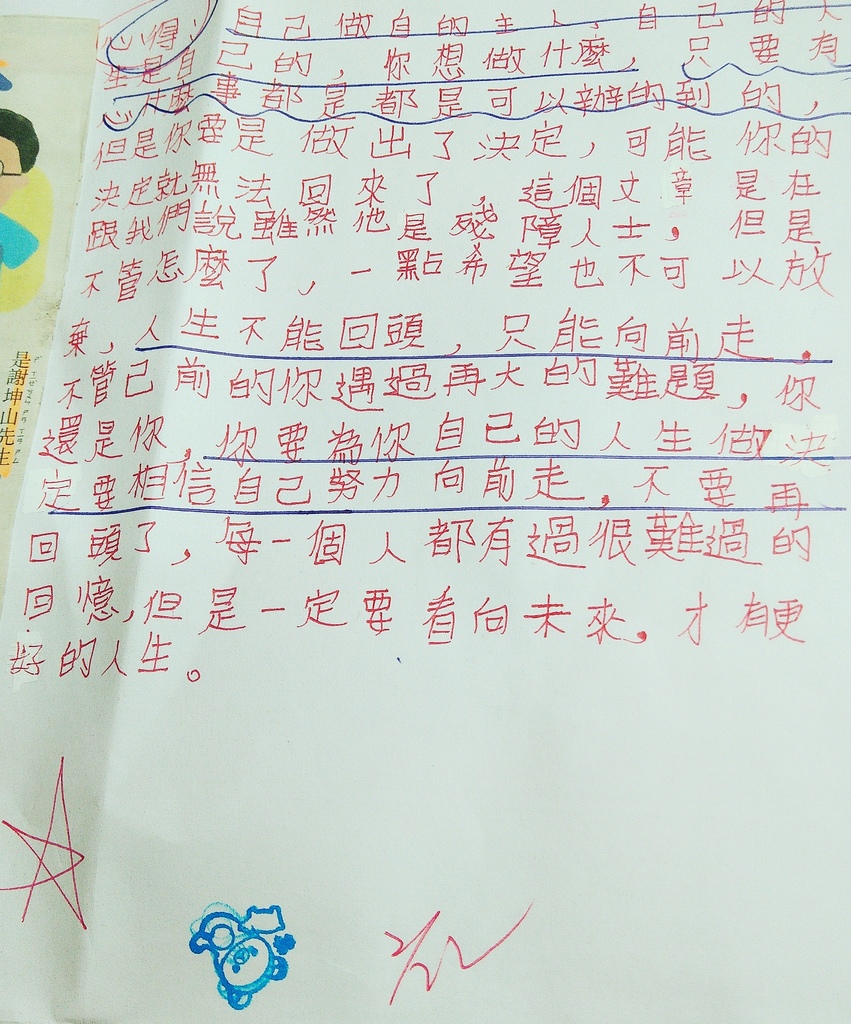 心得：自己做自的主人，自己的人
生是自己的，你想做什麼，只要有
心什麼事都是都是可以辦的到的，
但是你要是做出了決定，可能你的
決定就無法回來了，這個文章是在
跟我們說雖然他是殘障人士，但是
不管怎麼了，一點希望也不可以放
棄，人生不能回頭，只能向前走，
不管己前的你遇過再大的難題，你
還是你，你要為你自己的人生做決
定要相信自己努力向前走，不要再
回頭了，每一個人都有過很難過的
回憶，但是一定要看向未來，才有更
好的人生。
是謝坤山先生